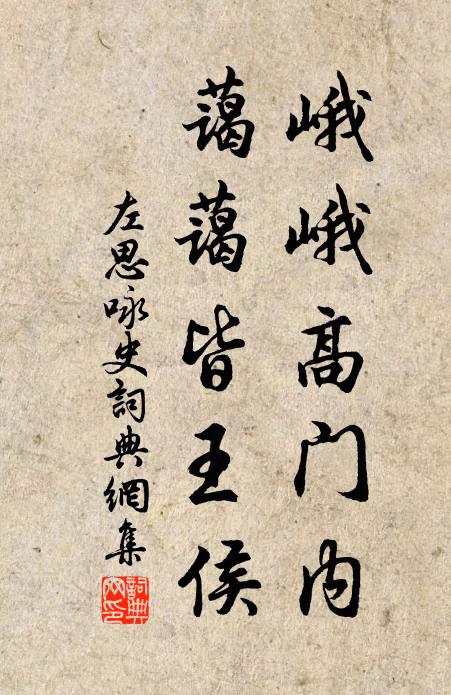 峨峨高门内
蔼蔼皆王侯
左思咏史词典網集
詞典
网印